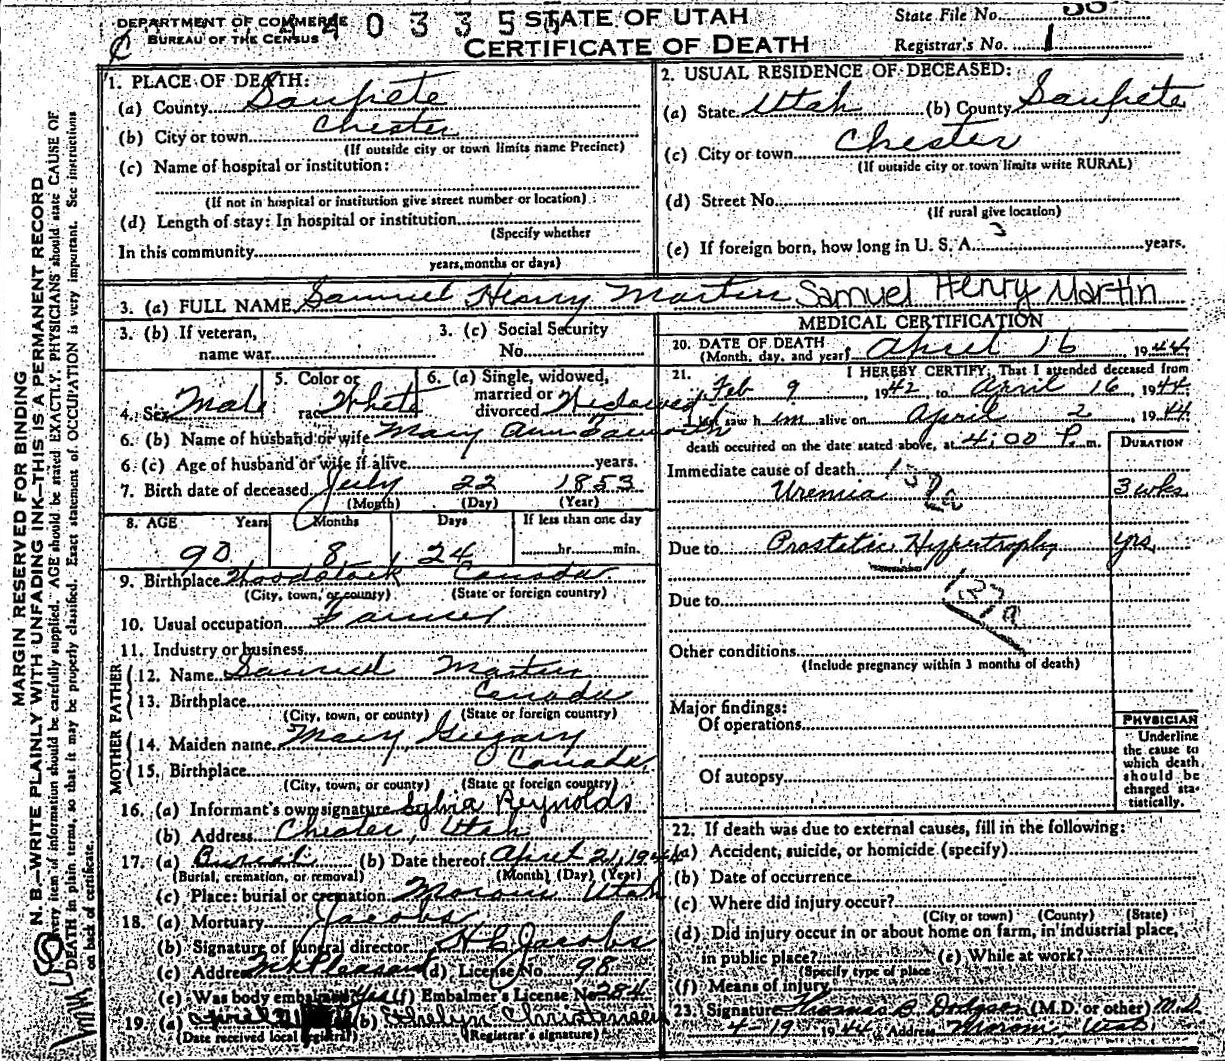 DEPARTMENT OF COMMERCE
BUREAU OF THE CENSUS
STATE OF UTAH
CERTIFICATE OF DEATH
State File No.
Registrar's No. 1
MARGIN RESERVED FOR BINDING
N. B.—WRITE PLAINLY WITH UNFADING INK—THIS IS A PERMANENT RECORD
Every item of information should be carefully supplied. AGE should be stated EXACTLY. PHYSICIANS should state CAUSE OF
DEATH in plain terms, so that it may be properly classified. Exact statement of OCCUPATION is very important. See instructions
on back of certificate.
1. PLACE OF DEATH:
(a) County Sanpete
(b) City or town Chester
(If outside city or town limits name Precinct)
(c) Name of hospital or institution:
(If not in hospital or institution give street number or location)
(d) Length of stay: In hospital or institution
(Specify whether
In this community
years, months or days)
2. USUAL RESIDENCE OF DECEASED:
(a) State Utah (b) County Sanpete
(c) City or town Chester
(If outside city or town limits write RURAL)
(d) Street No.
(If rural give location)
(e) If foreign born, how long in U. S. A. years.
3. (a) FULL NAME Samuel Henry Martin Samuel Henry Martin
3. (b) If veteran,
name war
3. (c) Social Security
No.
4. Sex Male
5. Color or
race White
6. (a) Single, widowed,
married or
divorced Widowed
6. (b) Name of husband or wife Mary Ann
6. (c) Age of husband or wife if alive years.
7. Birth date of deceased July 22 1853
(Month) (Day) (Year)
8. AGE Years Months Days If less than one day
90 8 24 hr. min.
9. Birthplace Woodstock Canada
(City, town, or county) (State or foreign country)
10. Usual occupation Farmer
11. Industry or business
FATHER
12. Name Samuel Martin
13. Birthplace Canada
(City, town, or county) (State or foreign country)
MOTHER
14. Maiden name Mary Gregary
15. Birthplace Canada
(City, town, or county) (State or foreign country)
16. (a) Informant's own signature Sylvia Reynolds
(b) Address Chester, Utah
17. (a) Burial (b) Date thereof April 21, 1944
(Burial, cremation, or removal) (Month) (Day) (Year)
(c) Place: burial or cremation Moroni Utah
18. (a) Mortuary Jacobs
(b) Signature of funeral director Jacobs
(c) Address Mt Pleasant (d) License No. 98
(e) Was body embalmed yes (f) Embalmer's License No. 284
19. (a) April (b) Ethelyn Christensen
(Date received local registrar) (Registrar's signature)
MEDICAL CERTIFICATION
20. DATE OF DEATH
(Month, day, and year) April 16 1944
21. I HEREBY CERTIFY, That I attended deceased from
Feb 9 1942 to April 16, 1944
I last saw him alive on April 2 1944
death occurred on the date stated above, at 4:00 P. m.
DURATION
Immediate cause of death
Uremia 3 wks.
Due to Prostatic Hypertrophy yrs.
137a
Due to
Other conditions
(Include pregnancy within 3 months of death)
Major findings:
Of operations
Of autopsy
PHYSICIAN
Underline
the cause to
which death
should be
charged sta-
tistically.
22. If death was due to external causes, fill in the following:
(a) Accident, suicide, or homicide (specify)
(b) Date of occurrence
(c) Where did injury occur?
(City or town) (County) (State)
(d) Did injury occur in or about home on farm, in industrial place,
in public place? (e) While at work?
(Specify type of place
(f) Means of injury
23. Signature Thomas (M.D. or other) M.D.
4-19 1944 Address Moroni, Utah